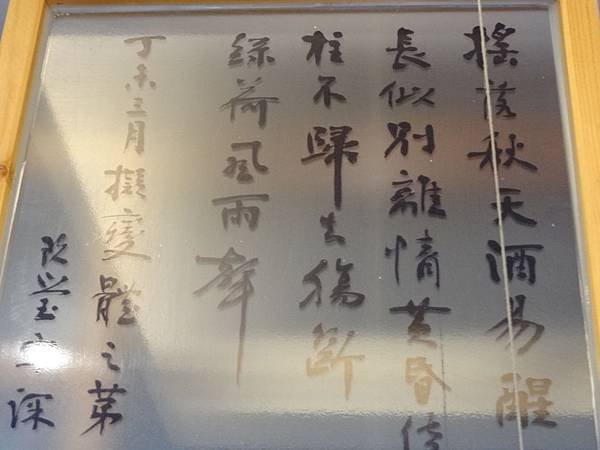 搖落秋天酒易醒
長似別離情黃昏倚
柱不歸去腸斷
綠荷風雨聲
丁未三月擬變體之第
深